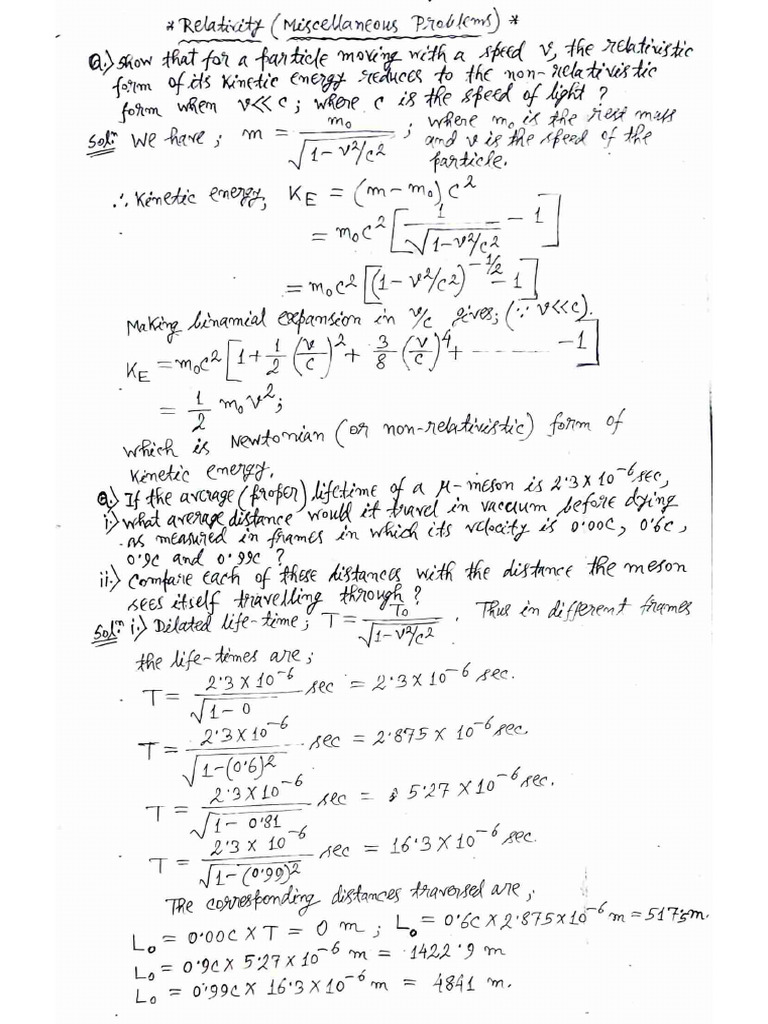 * Relativity (Miscellaneous Problems) *
Q.> Show that for a particle moving with a speed v, the relativistic
form of its kinetic energy reduces to the non-relativistic
form when v<<c; where c is the speed of light?
Solⁿ: We have; m = m₀/√(1-v²/c²) ; where m₀ is the rest mass
and v is the speed of the
particle.
∴ Kinetic energy, K_E = (m-m₀)c²
= m₀c² [1/√(1-v²/c²) - 1]
= m₀c² [(1-v²/c²)^(-1/2) - 1]
Making binamial expansion in v/c gives; (∵ v<<c).
K_E = m₀c² [1 + 1/2 (v/c)² + 3/8 (v/c)⁴ + ........ - 1]
= 1/2 m₀v²;
which is Newtonian (or non-relativistic) form of
kinetic energy.
Q.> If the average (proper) lifetime of a μ-meson is 2.3×10⁻⁶ sec,
i.> what average distance would it travel in vaccum before dying
as measured in frames in which its velocity is 0.00c, 0.6c,
0.9c and 0.99c ?
ii.> Compare each of these distances with the distance the meson
sees itself travelling through?
Solⁿ: i.> Dilated life-time; T = T₀/√(1-v²/c²) . Thus in different frames
the life-times are;
T = 2.3×10⁻⁶/√(1-0) sec = 2.3×10⁻⁶ sec.
T = 2.3×10⁻⁶/√(1-(0.6)²) sec = 2.875×10⁻⁶ sec.
T = 2.3×10⁻⁶/√(1-0.81) sec = 5.27×10⁻⁶ sec.
T = 2.3×10⁻⁶/√(1-(0.99)²) sec = 16.3×10⁻⁶ sec.
The corresponding distances traversed are;
L₀ = 0.00c×T = 0 m; L₀ = 0.6c×2.875×10⁻⁶ m = 517.5m.
L₀ = 0.9c×5.27×10⁻⁶ m = 1422.9 m
L₀ = 0.99c×16.3×10⁻⁶ m = 4841 m.